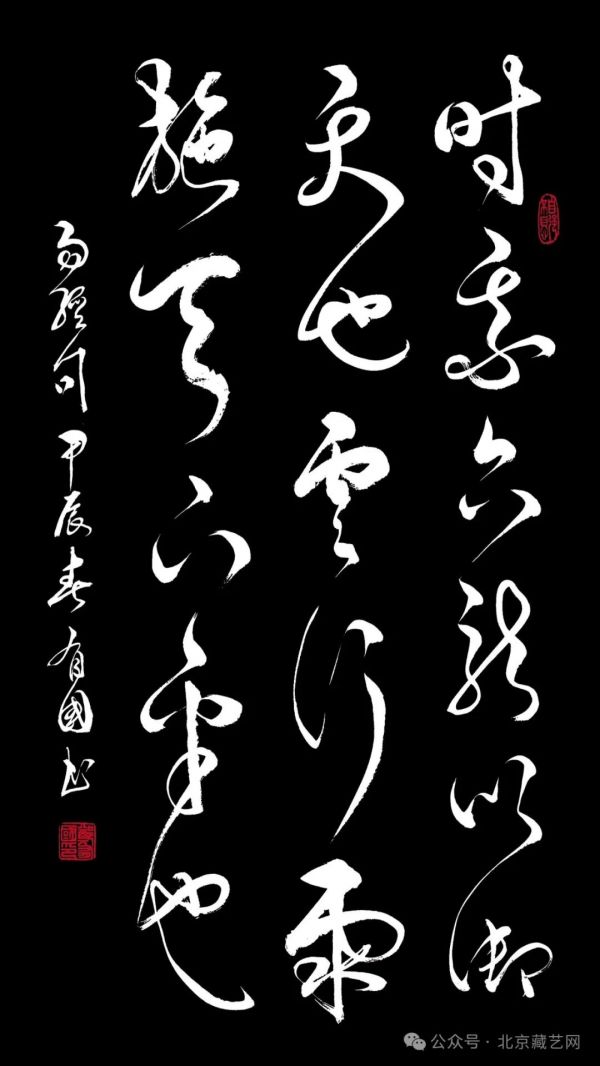 时乘六龙以御
天也云行雨
施天下平也
易经句 甲辰春 有国书
公众号·北京藏艺网